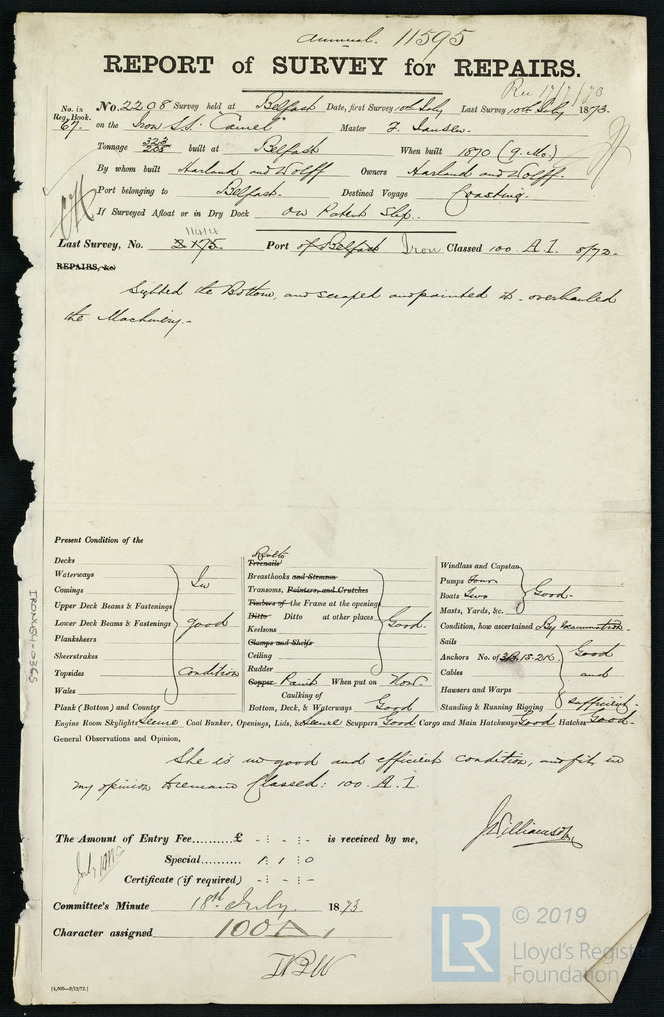 Annual. 11595
REPORT of SURVEY for REPAIRS.
Rec 17/7/73
No. in Reg. Book. No. 2208 Survey held at Belfast Date, first Survey 10th July Last Survey 10th July 1873.
67. on the Iron S.S. "Camel" Master J.
Tonnage 323 205 built at Belfast When built 1870 (9. Mo.)
By whom built Harland and Wolff Owners Harland and Wolff.
Port belonging to Belfast. Destined Voyage Coasting.
If Surveyed Afloat or in Dry Dock on Patent Slip.
11414
Last Survey, No. Port of Belfast Iron Classed 100. A. 1. 8/72.
REPAIRS, &c.
Sighted the Bottom, and scraped and painted it - overhauled
the Machinery.-
Present Condition of the
Decks
Waterways
Comings
Upper Deck Beams & Fastenings
Lower Deck Beams & Fastenings
Planksheers
Sheerstrakes
Topsides
Wales
Plank (Bottom) and Counter
In
good
condition
Rivets
Treenails
Breasthooks and Stemson
Transoms, Pointers, and Crutches
Timbers of the Frame at the openings
Ditto Ditto at other places
Keelsons
Clamps and Shelfs
Ceiling
Rudder
Good.
Copper Paint When put on Now.
Caulking of
Bottom, Deck, & Waterways Good
Windlass and Capstan
Pumps Four
Boats Two
Masts, Yards, &c.
Good.
Condition, how ascertained By Examination.
Sails
Anchors No. of
Cables
Hawsers and Warps
Standing & Running Rigging
Good
and
sufficient.
Engine Room Skylights Secure Coal Bunker, Openings, Lids, &c Secure Scuppers Good Cargo and Main Hatchways Good Hatches Good-
General Observations and Opinion,
She is in good and efficient condition, and fit, in
my opinion to remain Classed: 100. A. 1.
J Williamson
The Amount of Entry Fee.......... £ - : - : - is received by me,
Special.......... 1 1 0
Certificate (if required) - : - : -
Committee's Minute 18th July 1873
Character assigned 100 A 1
[4,000—9/12/72.]
IRON454-0365
LR © 2019
Lloyd's Register
Foundation